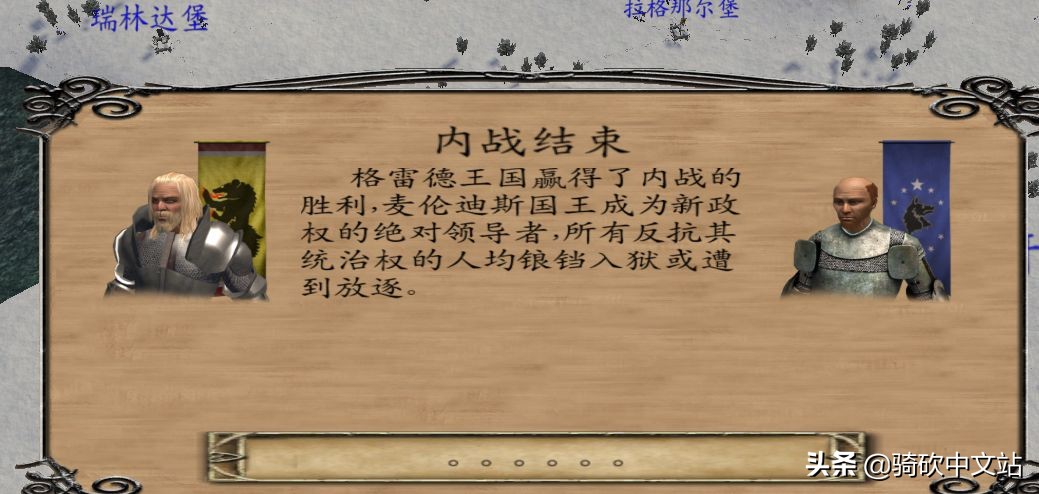 瑞林达堡
拉格那尔堡
内战结束
格雷德王国赢得了内战的
胜利,麦伦迪斯国王成为新政
权的绝对领导者,所有反抗其
统治权的人均锒铛入狱或遭
到放逐。
。。。。。。
头条 @骑砍中文站